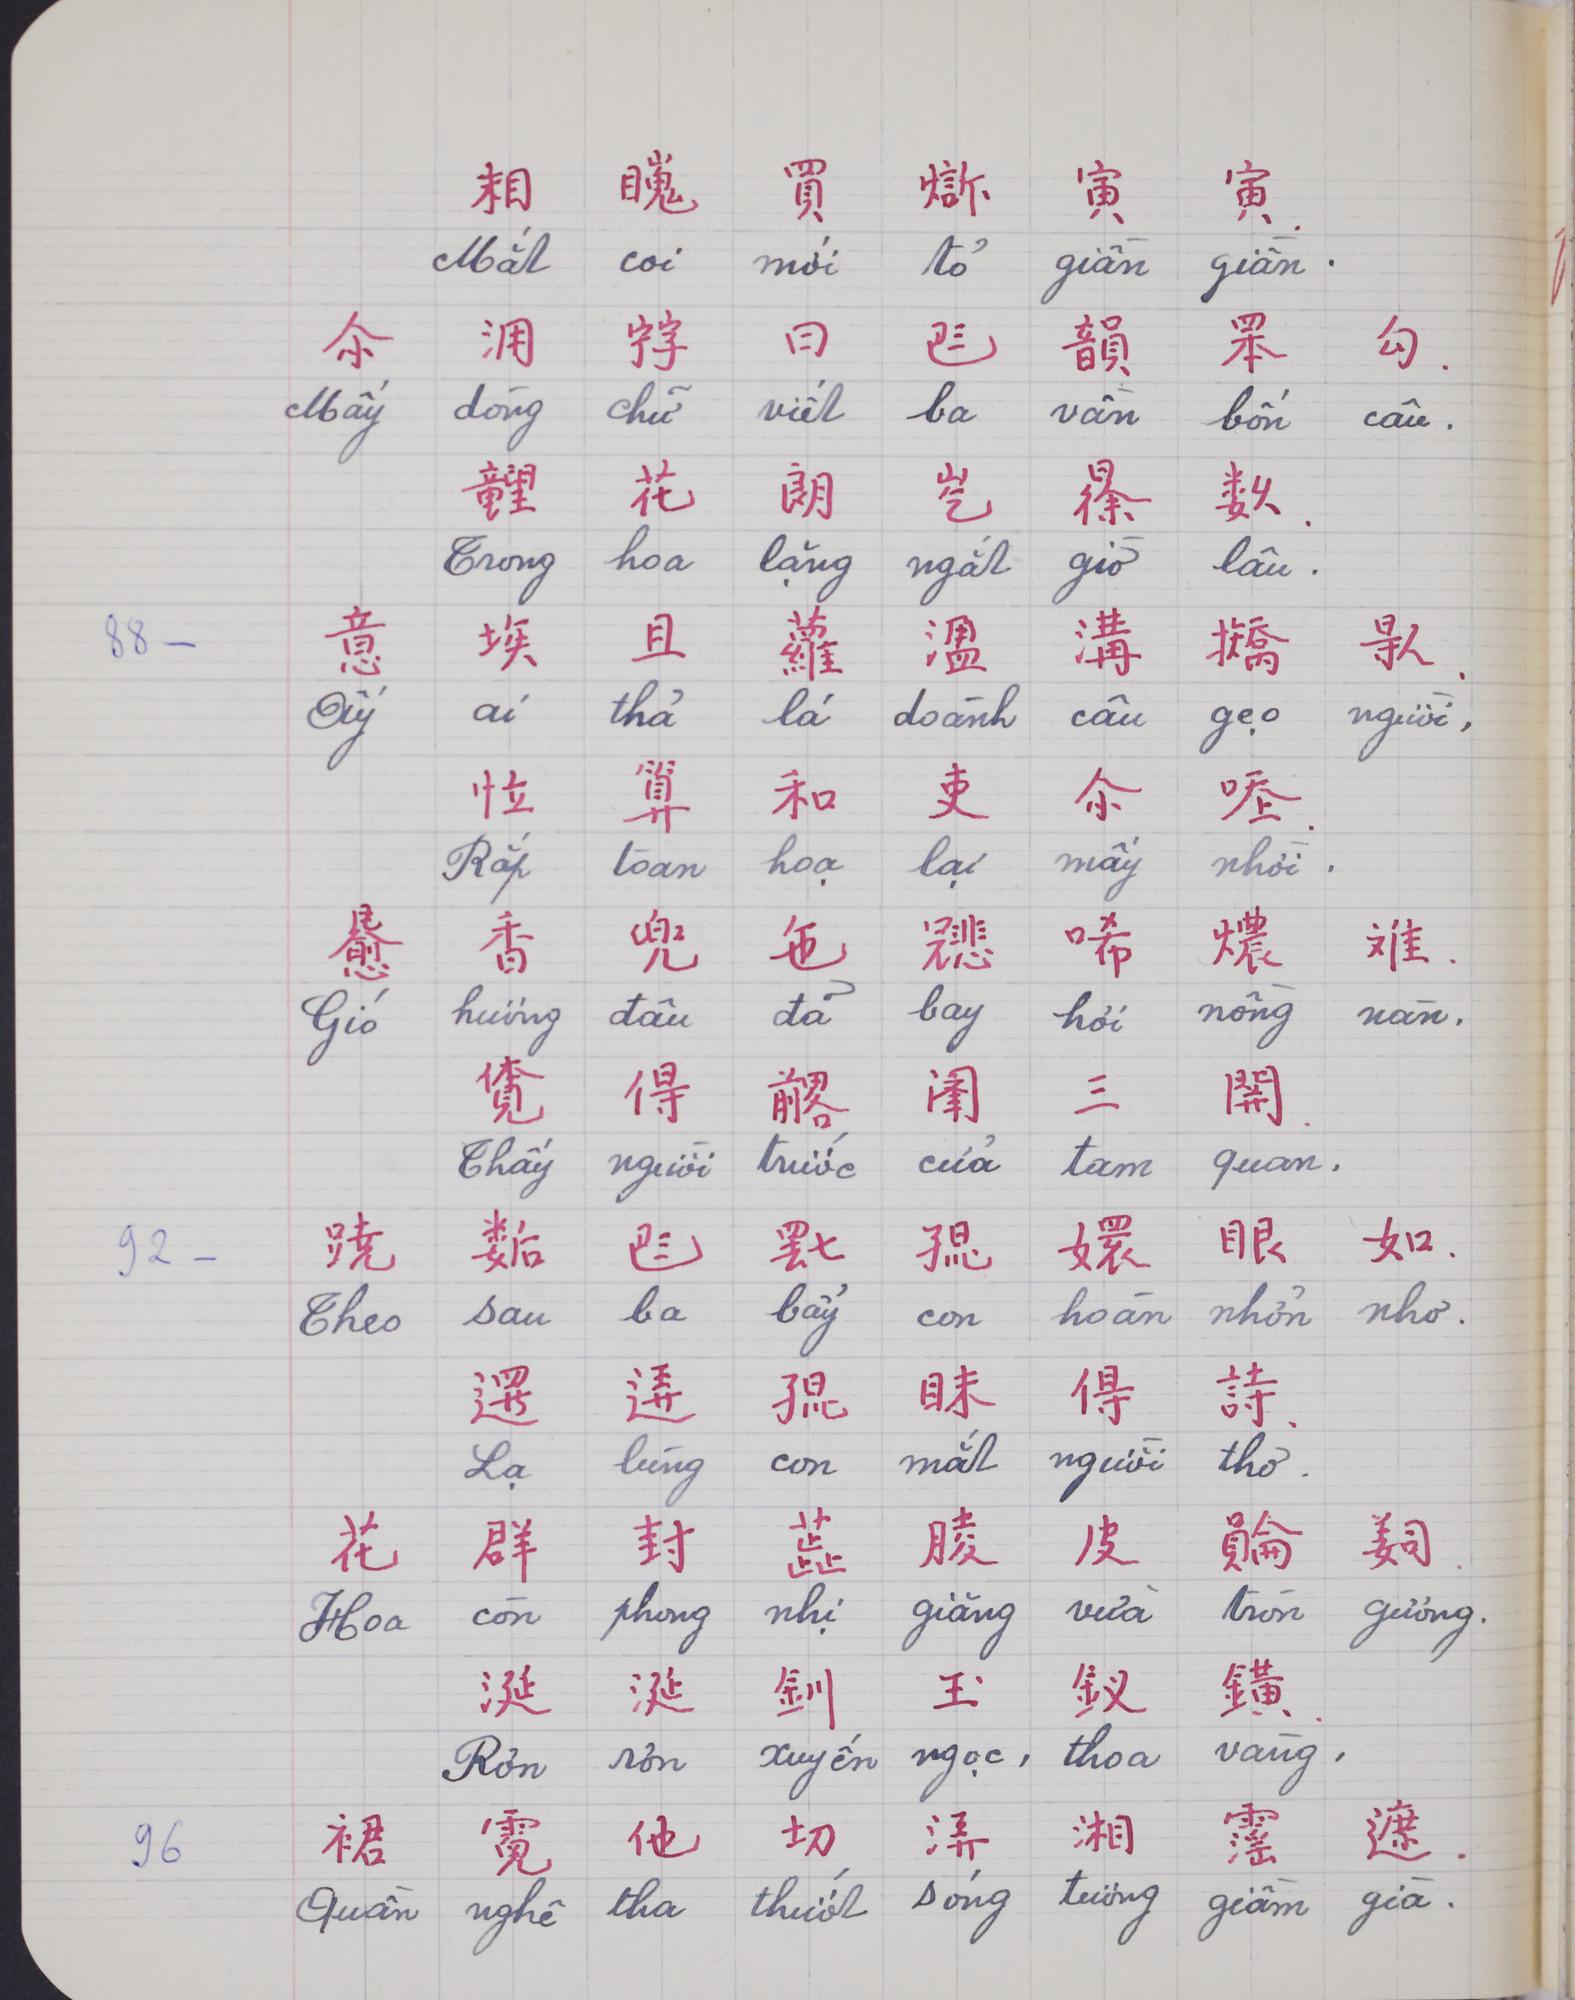 相 𥋳 買 𤑟 寅 寅.
Mắt coi mới tỏ giần giần.
尒 𣳔 𡨸 曰 𠀧 韻 𦊚 勾.
Mấy dòng chữ viết ba vần bốn câu.
𥪝 花 朗 屹 𣇞 数.
Trong hoa lặng ngắt giờ lâu.
88 – 意 埃 且 蘿 溋 溝 撟 𠊛.
Ấy ai thả lá doành câu gẹo người,
㤕 算 和 吏 尒 𠳒.
Rắp toan hoạ lại mấy nhời.
香 兜 㐌 唏 燶 难.
Gió hương đâu đã bay hơi nồng nàn.
𧡊 得 𠓀 𨷶 三 關.
Thấy người trước cửa tam quan.
92 – 𨀊 𢖖 𠀧 𦉱 𡥵 嬛 眼 如.
Theo sau ba bảy con hoàn nhởn nhơ.
逻 𨓡 𡥵 眜 得 詩.
Lạ lùng con mắt người thơ.
花 群 封 蕋 𦝄 皮 𧷺 𦎛.
Hoa còn phong nhị giăng vừa tròn gương.
涎 涎 釧 玉 釵 鐄.
Rờn rờn xuyến ngọc, thoa vàng,
96 裙 霓 他 切 㳥 湘 霪 遮.
Quần nghê tha thướt sóng tương giầm già.